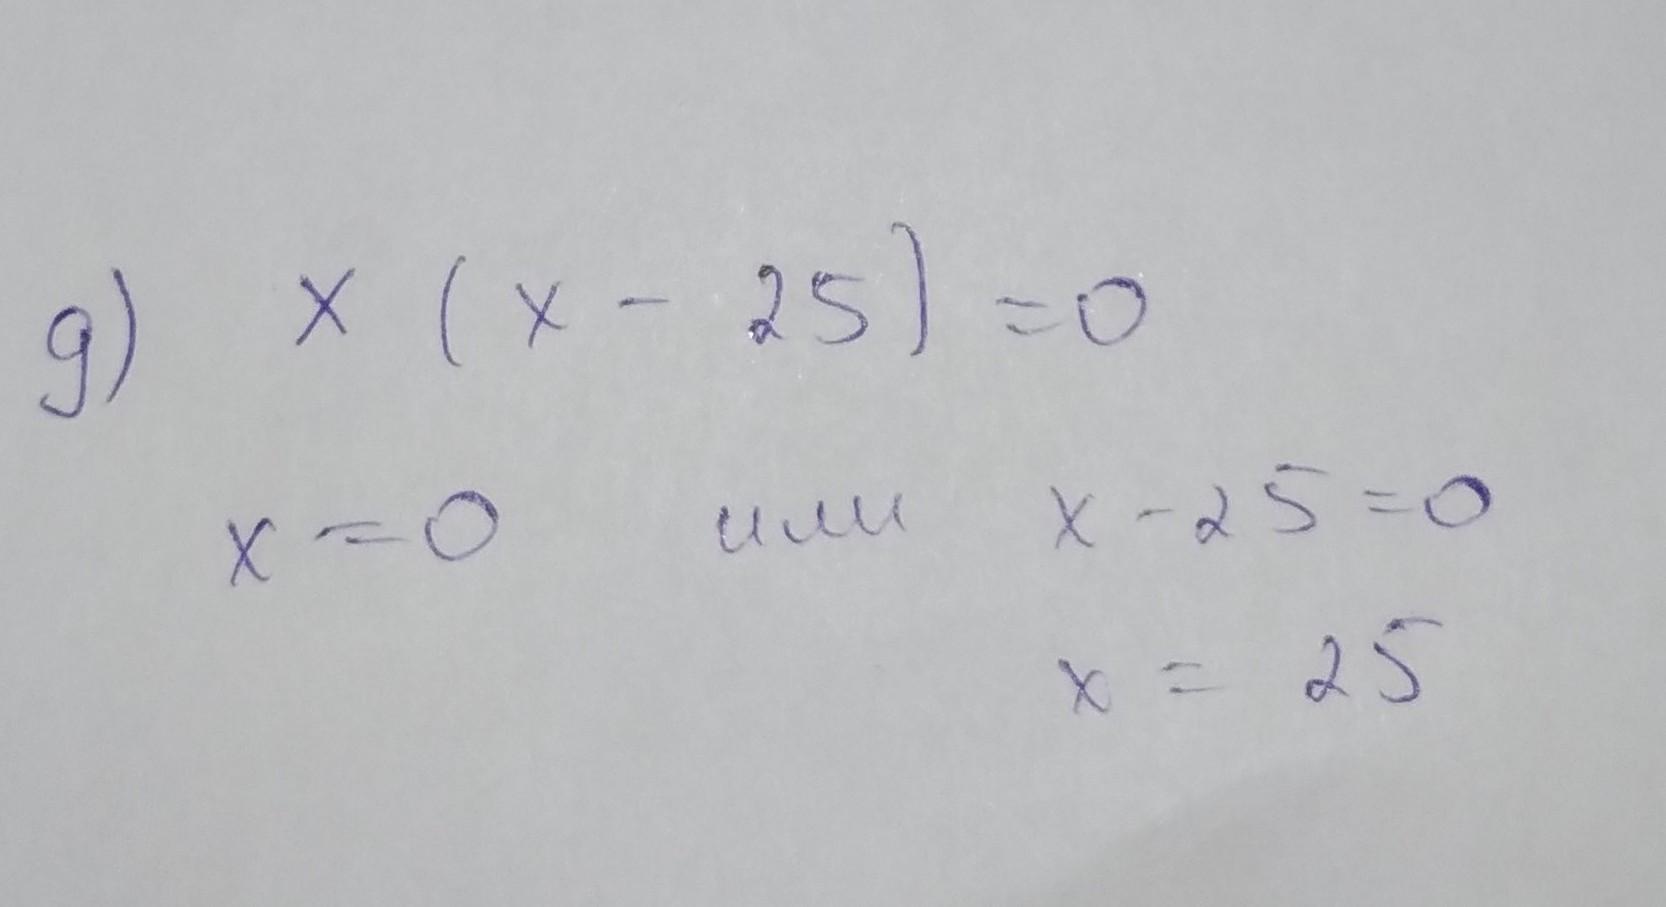 д) x (x - 25) = 0
x = 0 или x - 25 = 0
x = 25